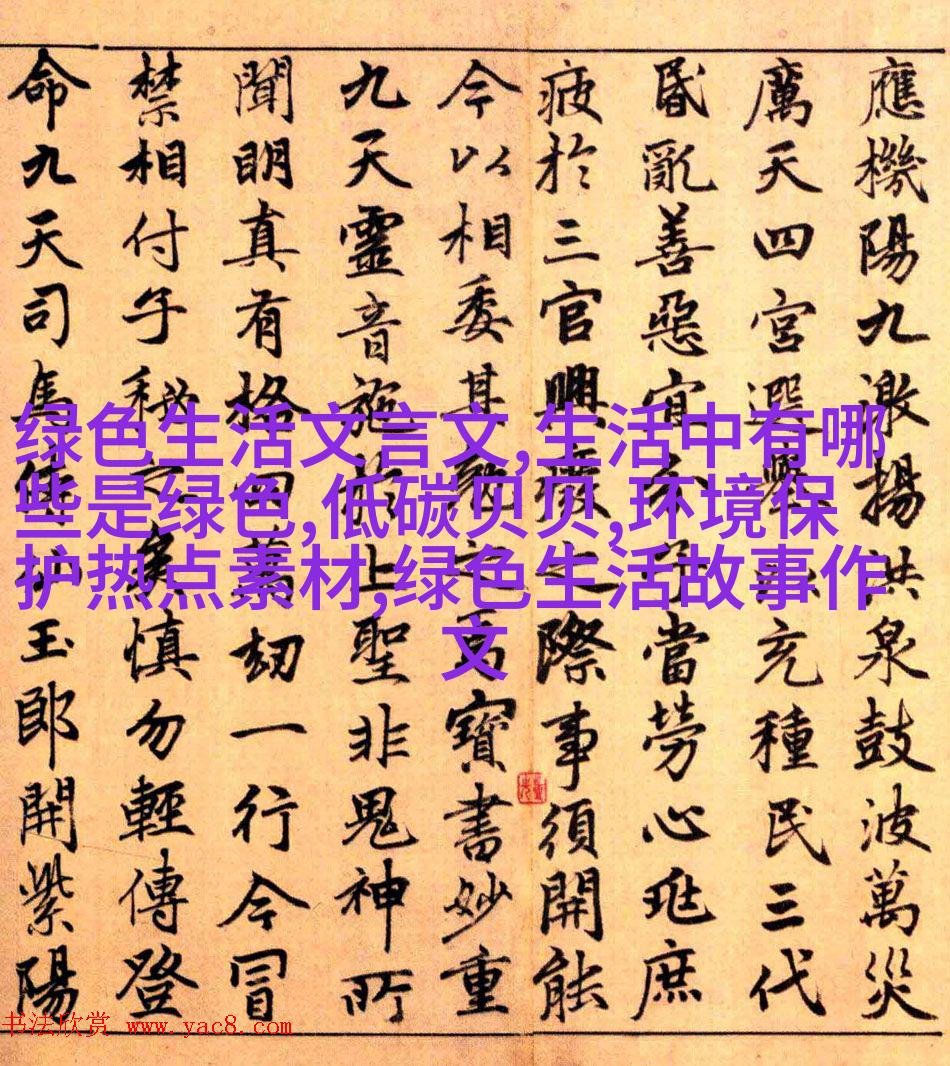 應機陽九激揚洪泉鼓波萬災
厲天四宮選舉充種民三代
昏亂善惡宜分子當勞心兆庶
疲於三官興廢之際事須開能
今以相委其為寶書妙重
九天靈音施於上聖非鬼神所
聞明真有格四萬劫一行今冒
禁相付子秘慎勿輕傳登
命九天司馬侍仙玉郎開紫陽
绿色生活文言文,生活中有哪
些是绿色,低碳贝贝,环境保
护热点素材,绿色生活故事作
文
书法欣赏 www.yac8.com